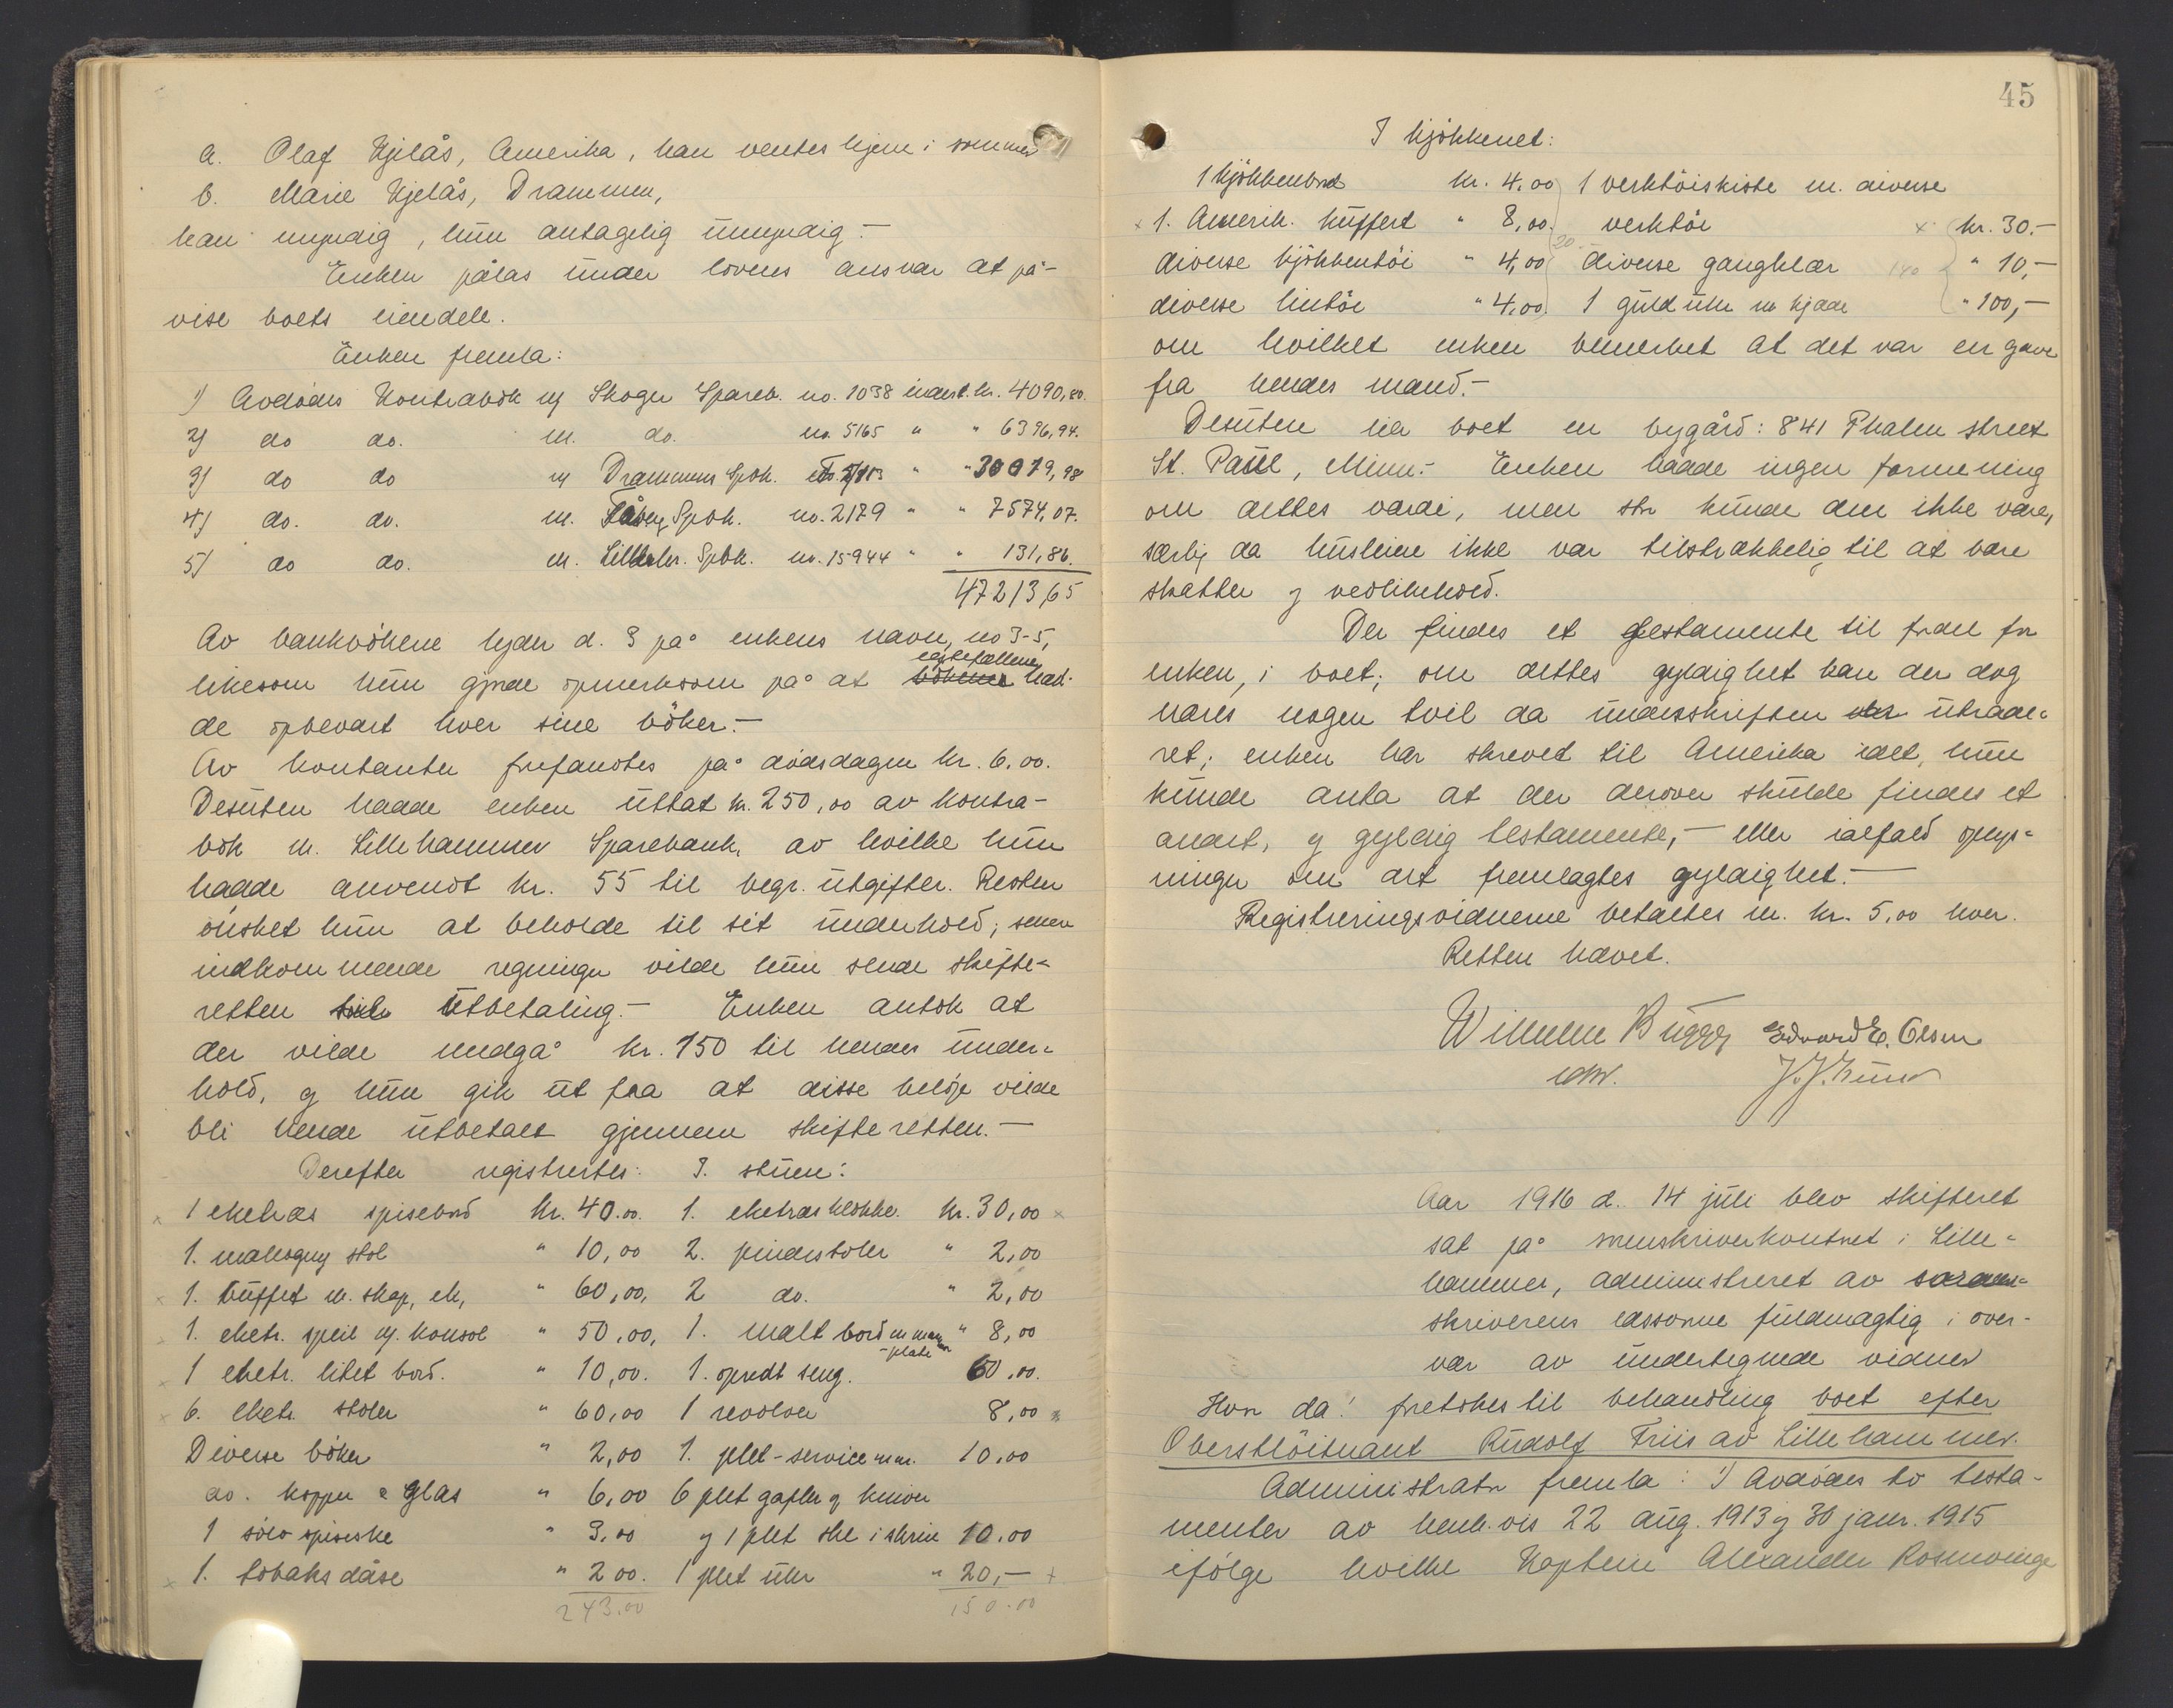 a. Olaf Hjelås, Amerika, han ventes hjem i sommer
b. Marie Hjelås, Drammen,
han myndig, hun antagelig umyndig.-
Enken pålas under lovens ansvar at på-
vise boets eiendele.
Enken fremla:
1) Avdødes Kontrabok m Skoger Spareb. no. 1038 indest. kr. 4090,80.
2) do do. m. do. no. 5165 " " 6396,94.
3) do do m Drammens Spbk. " " 30079,98
4) do. do. m. Fåberg Spbk. no. 2179 " " 7574,07.
5) do do. m. Lillehr. Spbk. no. 15944 " " 131,86.
47213,65
Av bankbökene lyder d. 3 på enkens navn, no 3-5,
likesom hun gjorde opmerksom på at bökene egtefællene had-
de opbevart hver sine böker.-
Av kontanter forefandtes på dödsdagen kr. 6.00.
Desuten hadde enken uttat kr. 250,00 av kontra-
bok m. Lillehammer Sparebank, av hvilke hun
hadde anvendt kr. 55 til begr. utgifter. Resten
önsket hun at beholde til sit underhold; senere
indkommende regninger vilde hun sende skifte-
retten til utbetaling.- Enken antok at
der vilde medgå kr. 150 til hendes under-
hold, og hun gik ut fra at disse belöp vilde
bli hende utbetalt gjennem skifteretten.-
Derefter registrertes: I. stuen:
x 1 eketræs spisebord kr. 40.00. 1. eketræsklokke. kr. 30,00 x
1. mahogny stol " 10,00 2. pindestoler " 2,00
x 1. buffet m. skap, ek, " 60,00, 2 do. " 2,00
x 1. eketr. speil m. konsol " 50,00, 1. malt bord m marmor " 8,00
-plate
x 1 eketr. litet bord. " 10,00. 1. opredt seng. 60.00.
x 6. eketr. stoler " 60,00 1 revolver 8,00 x
Diverse böker " 2,00 1. plet-service m.m. 10.00
do. kopper & glas " 6,00 6 plet gafler og kniver
1 sölv spiseske " 3,00 og 1 plet ske i skrin 10.00
x 1. tobaksdåse " 2 00. 1 plet uhr " 20,- +
243.00 150.00
45
I kjökkenet:
1 kjökkenbord kr. 4.00 1 verktöiskiste m. diverse
x 1. Amerik. kuffert " 8,00. verktöi x kr. 30.-
diverse kjökkentöi " 4,00 20 diverse gangklær 140 " 10,-
diverse lintöi " 4.00. 1 guld uhr m kjæde " 100,-
om hvilket enken bemerket at det var en gave
fra hendes mand.-
Desuten eier boet en bygård: 841 Phalen street
St. Paul, Minn.- Enken hadde ingen formening
om dettes værdi, men stor kunde den ikke være,
særlig da husleien ikke var tilstrækkelig til at bære
skatter og vedlikehold.
Der findes et testamente til fordel for
enken, i boet; om dettes gyldighet kan der dog
næres nogen tvil da underskriften er utrade-
ret; enken har skrevet til Amerika idet, hun
kunde anta at der derover skulde findes et
andet, og gyldig testamente,- eller ialfald oplys-
ninger om det fremlagtes gyldighet.-
Registreringsvidnerne betaltes m. kr. 5,00 hver.
Retten hævet.
Wilhelm Bugge Edvard E. Olsen
cdtr.
Aar 1916 d. 14 juli blev skifteret
sat på sorenskriverkontoret i Lille-
hammer, administreret av soren-
skriverens edsvorne fuldmægtig i over-
vær av undertegnede vidner
Hvor da! foretokes til behandling boet efter
Oberstlöitnant Rudolf Friis av Lillehammer.
Administrator fremla: 1) Avdödes to testa-
menter av henh.vis 22 aug. 1913 og 30 janr. 1915
ifölge hvilke Kaptein Alexander Rosenvinge